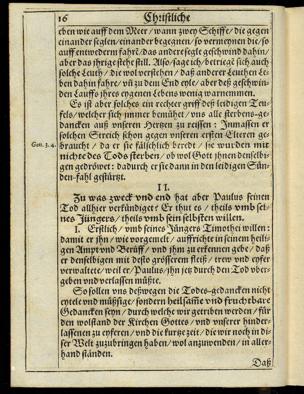 16 Christliche
eben wie auff dem Meer / wann zwey Schiffe / die gegen
einander seglen / einander begegnen / so vermeynen die / so
auff entwederm fahrẽ / das andere segle geschwind dahin /
aber das ihrige stehe still. Also / sage ich / betriegẽ sich auch
solche Leuth / die wol verstehen / daß anderer Leuthen Le-
ben dahin fahre / uñ zu dem End eyle / aber deß geschwin-
den Lauffs ihres eygenen Lebens wenig warnemmen.
Es ist aber solches ein rechter griff deß leidigen Teu-
fels / welcher sich immer bemühet / uns alle sterbens-ge-
dancken auß unseren Hertzen zu reissen : Jnmassen er
solchen Streich schon gegen unseren ersten Elteren ge-
Gen. 3. 4.
braucht / da er sie fälschlich beredt / sie wurden mit
nichte des Tods sterben / ob wol Gott ihnen denselbi-
gen gedröwet : dadurch er sie dann in den leidigen Sün-
den-fahl gestürtzt.
II.
Zu was zweck und end hat aber Paulus seinen
Tod allhier verkündiget? Er thut es / theils umb sei-
nes Jüngers / theils umb sein selbsten willen.
I. Erstlich / umb seines Jüngers Timothei willen :
damit er ihn / wie vorgemelt / auffrichte in seinem heili-
gen Ampt und Berüff / und ihm zu erkennen gebe / daß
er denselbigen mit desto grösserem fleiß / trew und eyfer
verwaltete / weil er / Paulus / ihn jetz durch den Tod uber-
geben und verlassen müßte.
So sollen uns deßwegen die Todes-gedancken nicht
eytele und müßige / sondern heilsame und fruchtbare
Gedancken seyn / durch welche wir getrieben werden / für
den wolstand der Kirchen Gottes / und unserer hinder-
lassenen zu eyferen / und die kurtze zeit / die wir noch in die-
ser Welt zuzubringen haben / wol anzuwenden / in aller-
hand ständen.
Daß